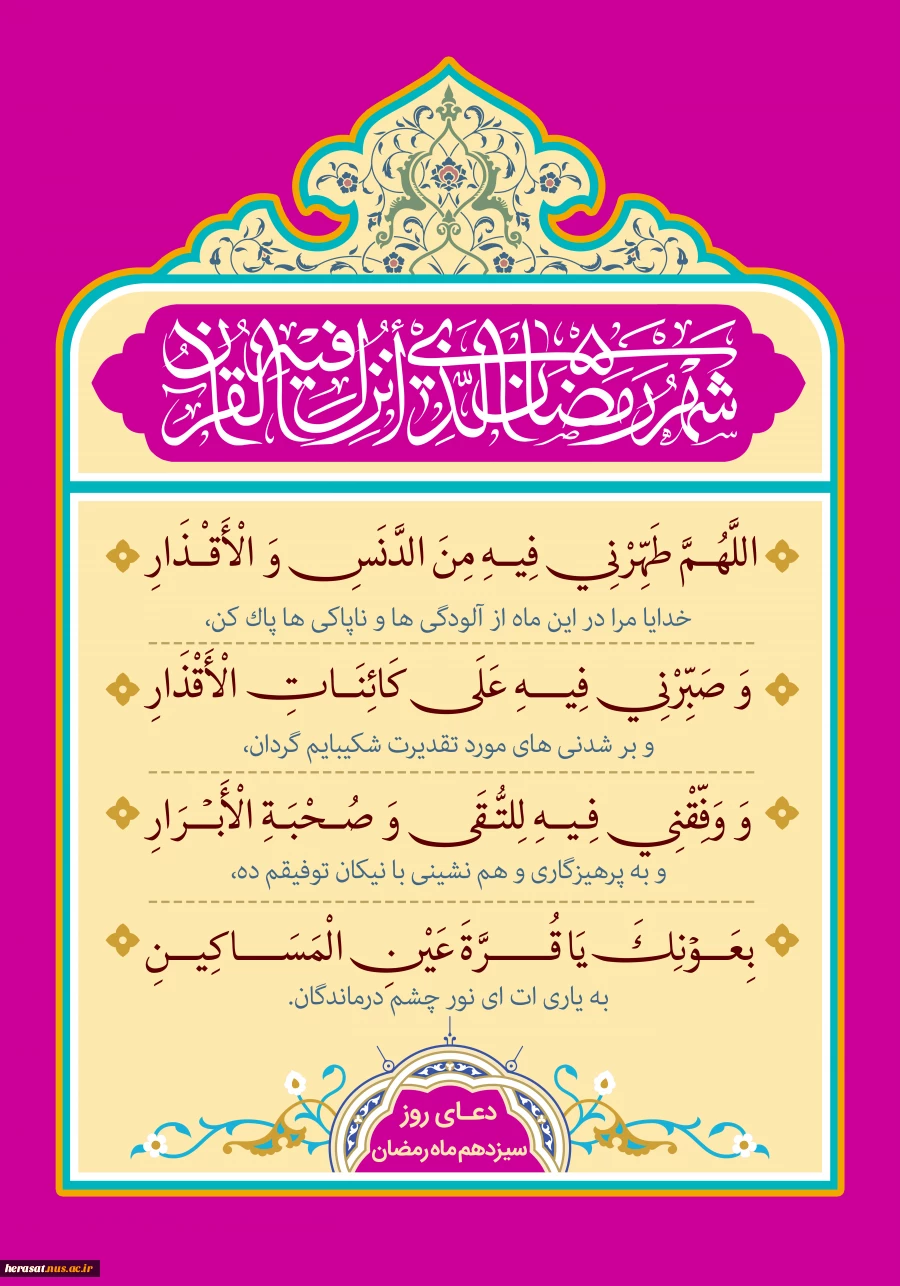 شَهْرُ رَمَضَانَ الَّذِي أُنْزِلَ فِيهِ الْقُرْآنُ
اللَّهُمَّ طَهِّرْنِي فِيهِ مِنَ الدَّنَسِ وَ الْأَقْذَارِ
خدایا مرا در این ماه از آلودگی ها و ناپاکی ها پاك کن،
وَ صَبِّرْنِي فِيهِ عَلَى كَائِنَاتِ الْأَقْذَارِ
و بر شدنی های مورد تقدیرت شکیبایم گردان،
وَ وَفِّقْنِي فِيهِ لِلتُّقَى وَ صُحْبَةِ الْأَبْرَارِ
و به پرهیزگاری و هم نشینی با نیکان توفیقم ده،
بِعَوْنِكَ يَا قُرَّةَ عَيْنِ الْمَسَاكِينِ
به یاری ات ای نور چشم درماندگان.
دعای روز
سیزدهم ماه رمضان
herasat.nus.ac.ir